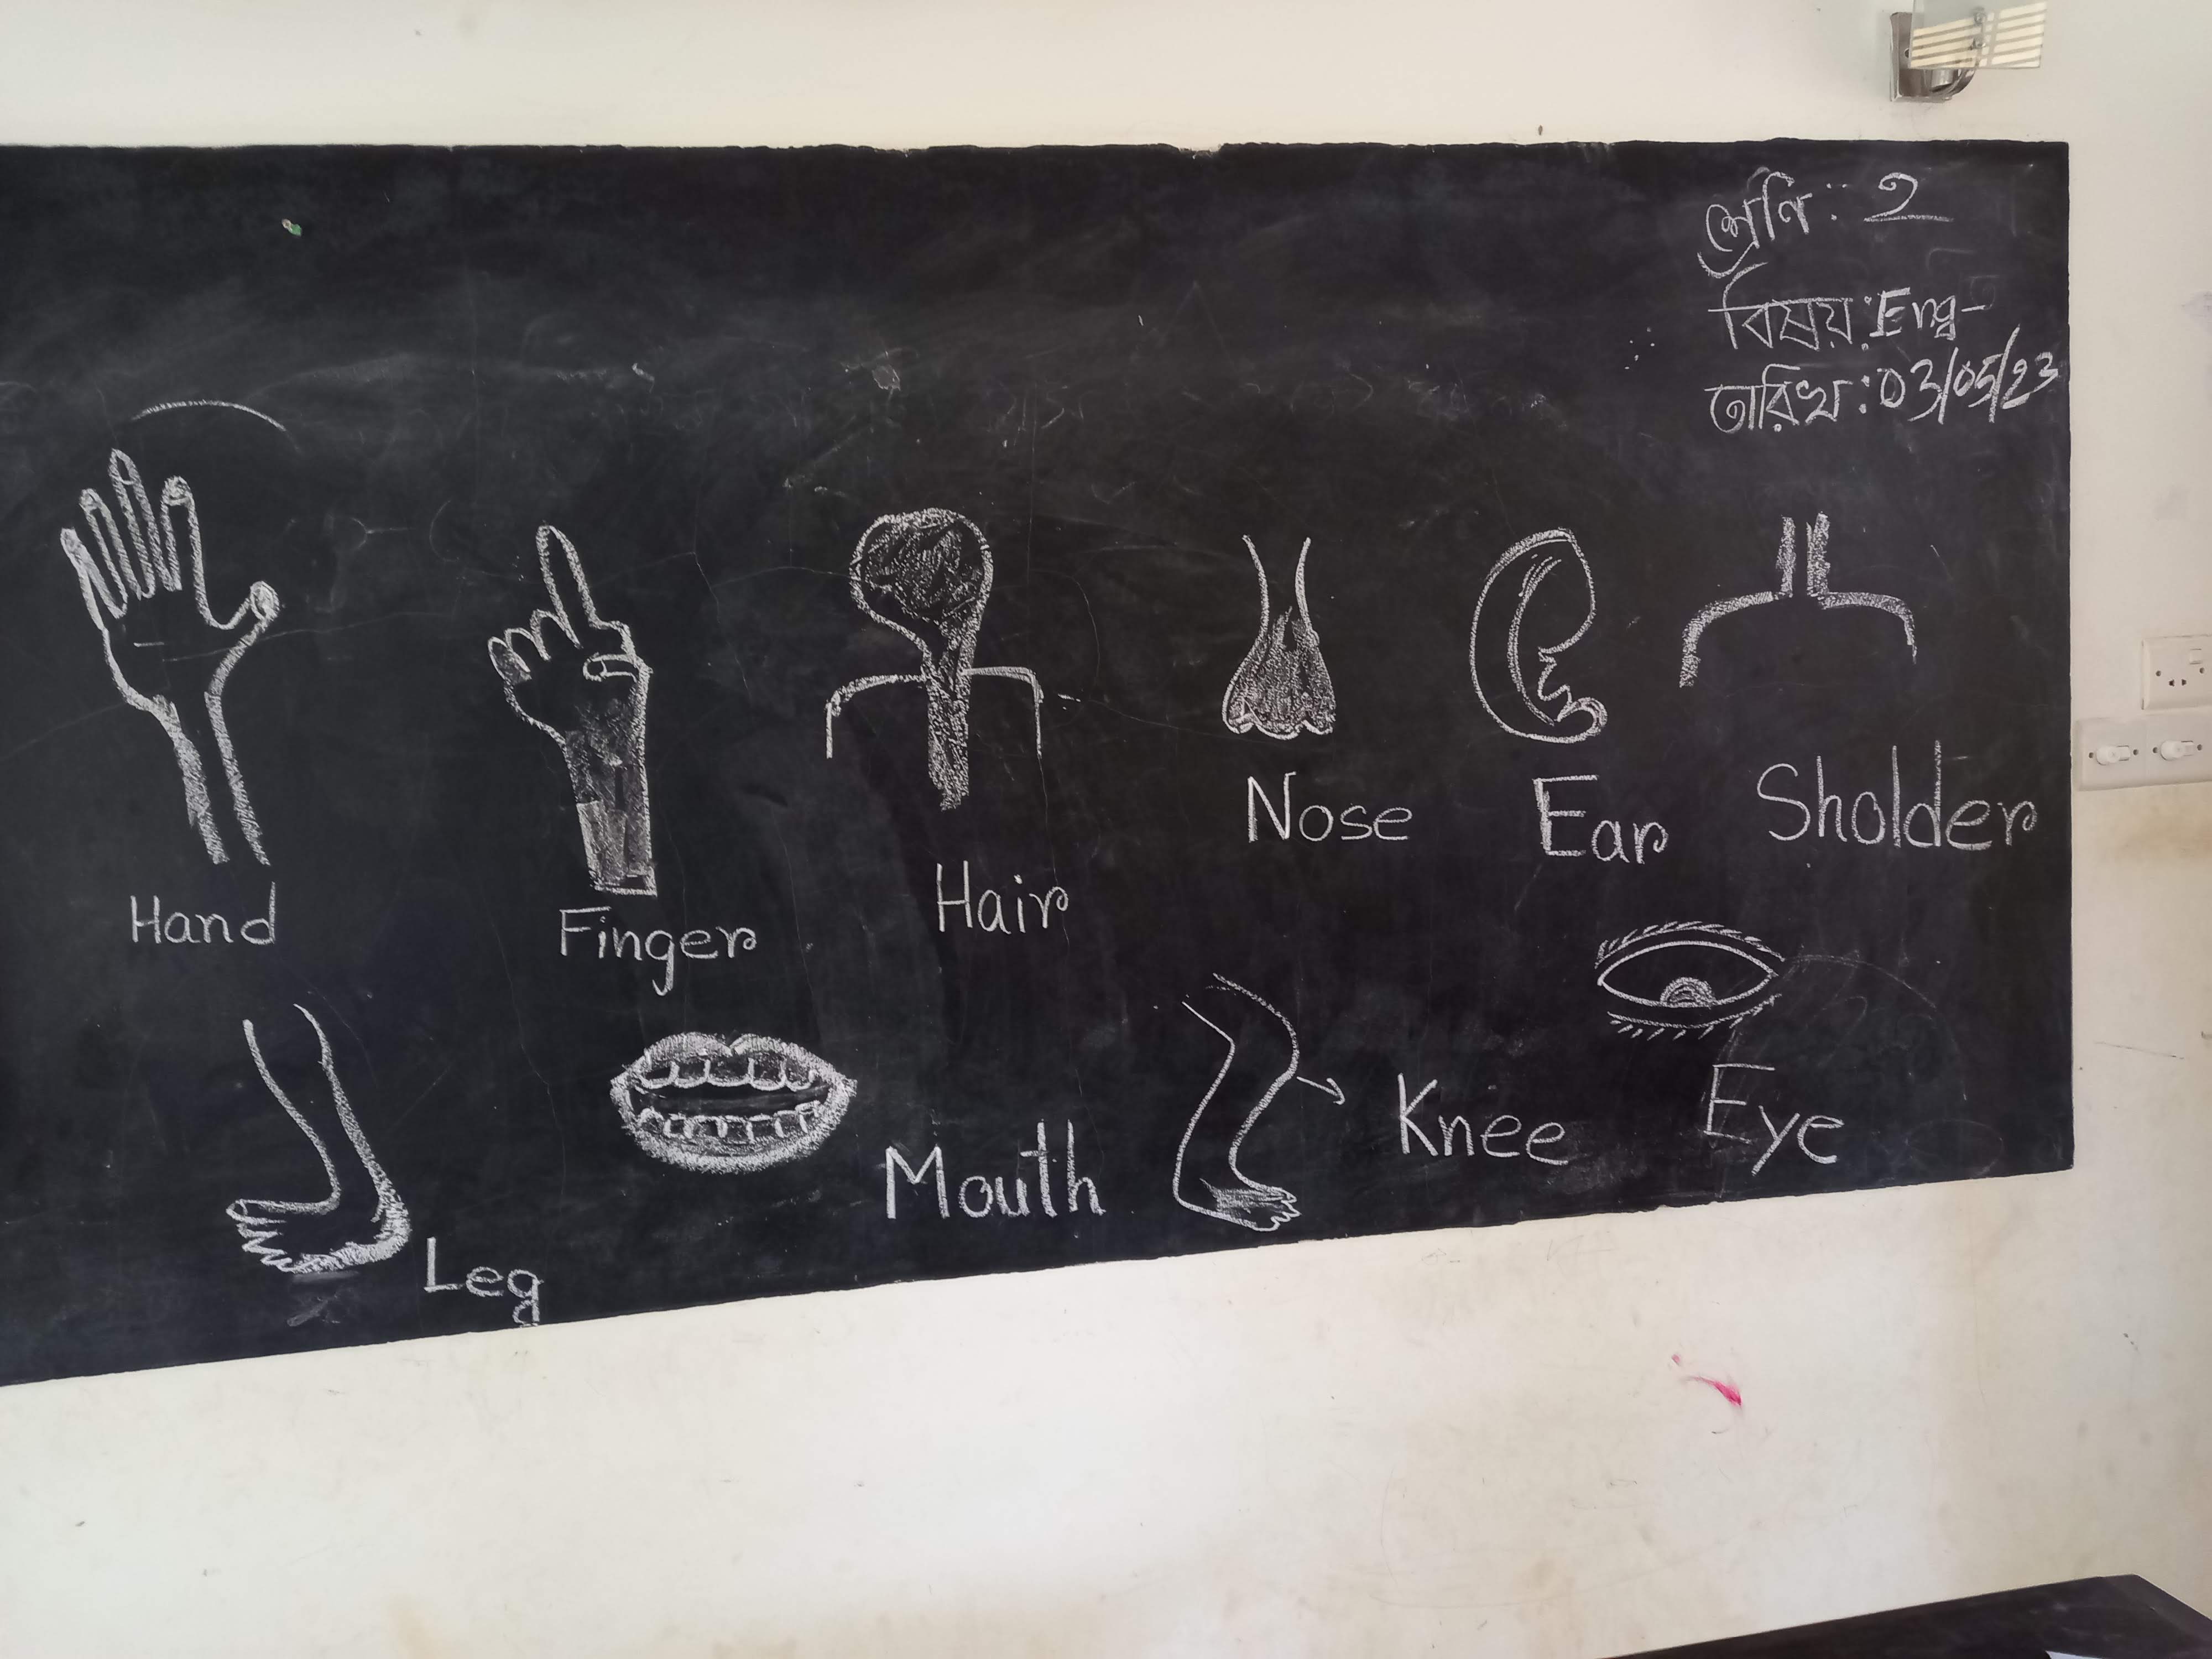 শ্রেণি: ২
বিষয়: Eng-
তারিখ: 03/05/23
Hand
Finger
Hair
Nose
Ear
Sholder
Leg
Mouth
Knee
Eye